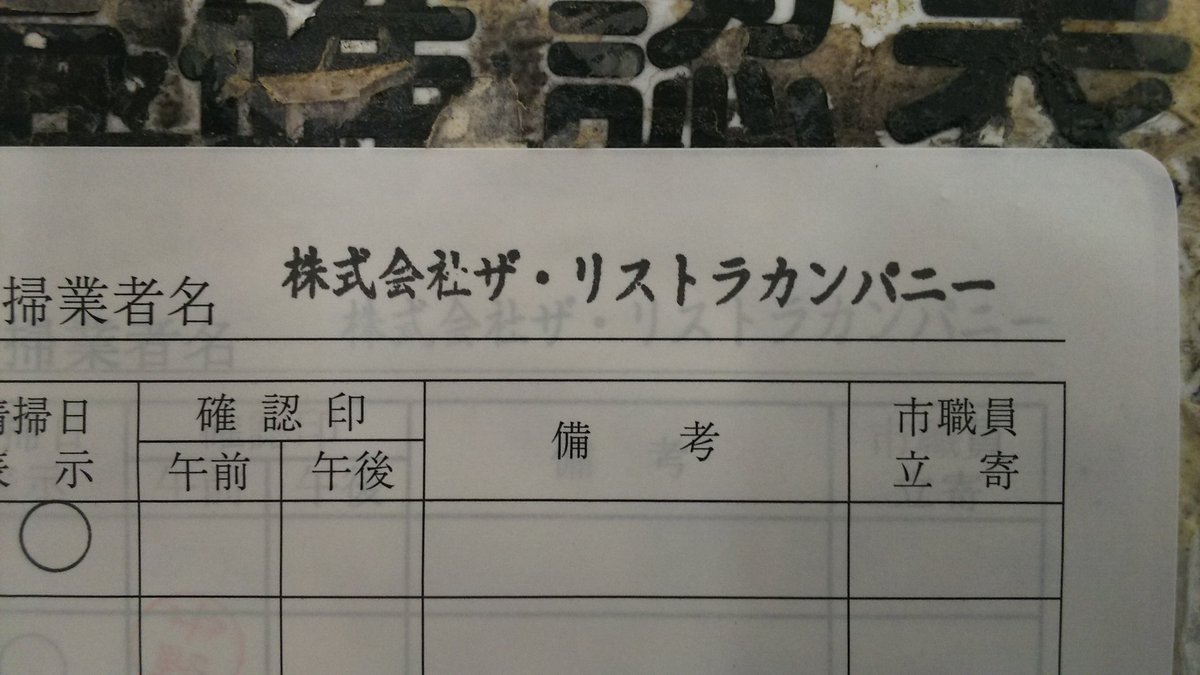 掃業者名 株式会社ザ・リストラカンパニー
清掃日表示 確認印 備考 市職員立寄
午前 午後